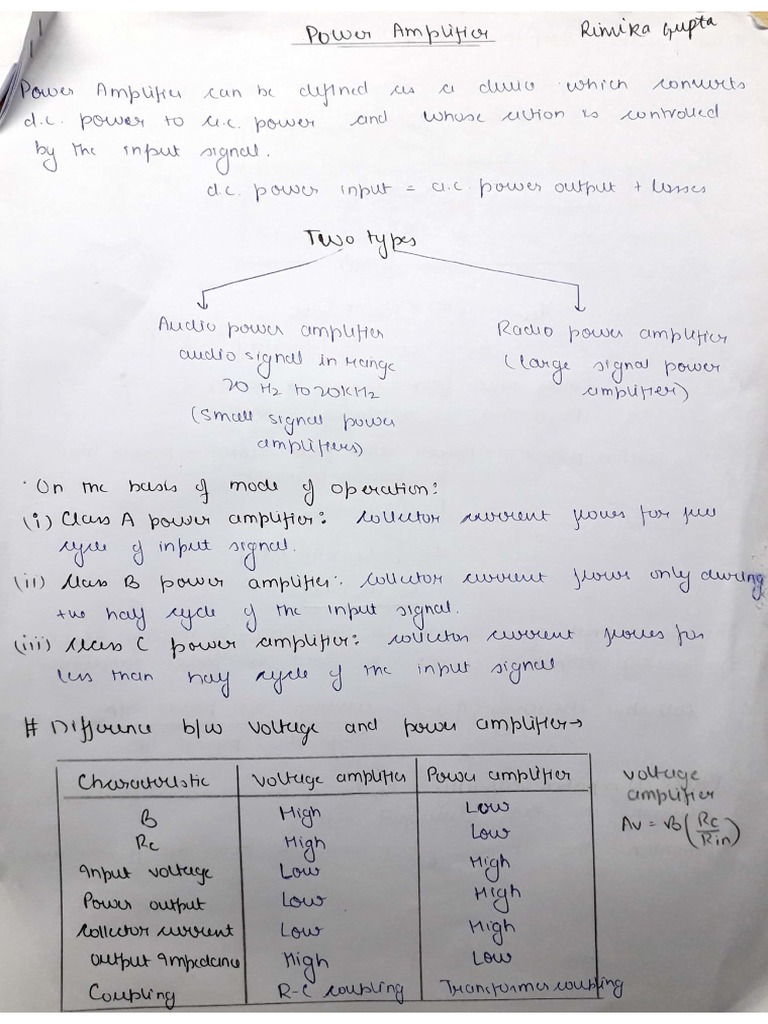 Power Amplifier
Rimika Gupta
Power Amplifier can be defined as a device which converts
d.c. power to a.c. power and whose action is controlled
by the input signal.
d.c. power input = a.c. power output + losses
Two types
Audio power amplifier
audio signal in range
20 Hz to 20KHz
(small signal power
amplifiers)
Radio power amplifier
(large signal power
amplifier)
On the basis of mode of operation:
(i) Class A power amplifier: collector current flows for full
cycle of input signal.
(ii) Class B power amplifier: collector current flows only during
+ve half cycle of the input signal.
(iii) Class C power amplifier: collector current flows for
less than half cycle of the input signal
# Difference b/w voltage and power amplifier→
Characteristic Voltage amplifier Power amplifier
β High Low
Rc High Low
Input voltage Low High
Power output Low High
collector current Low High
output Impedance High Low
Coupling R-C coupling Transformer coupling
voltage
amplifier
Av = β(Rc/Rin)